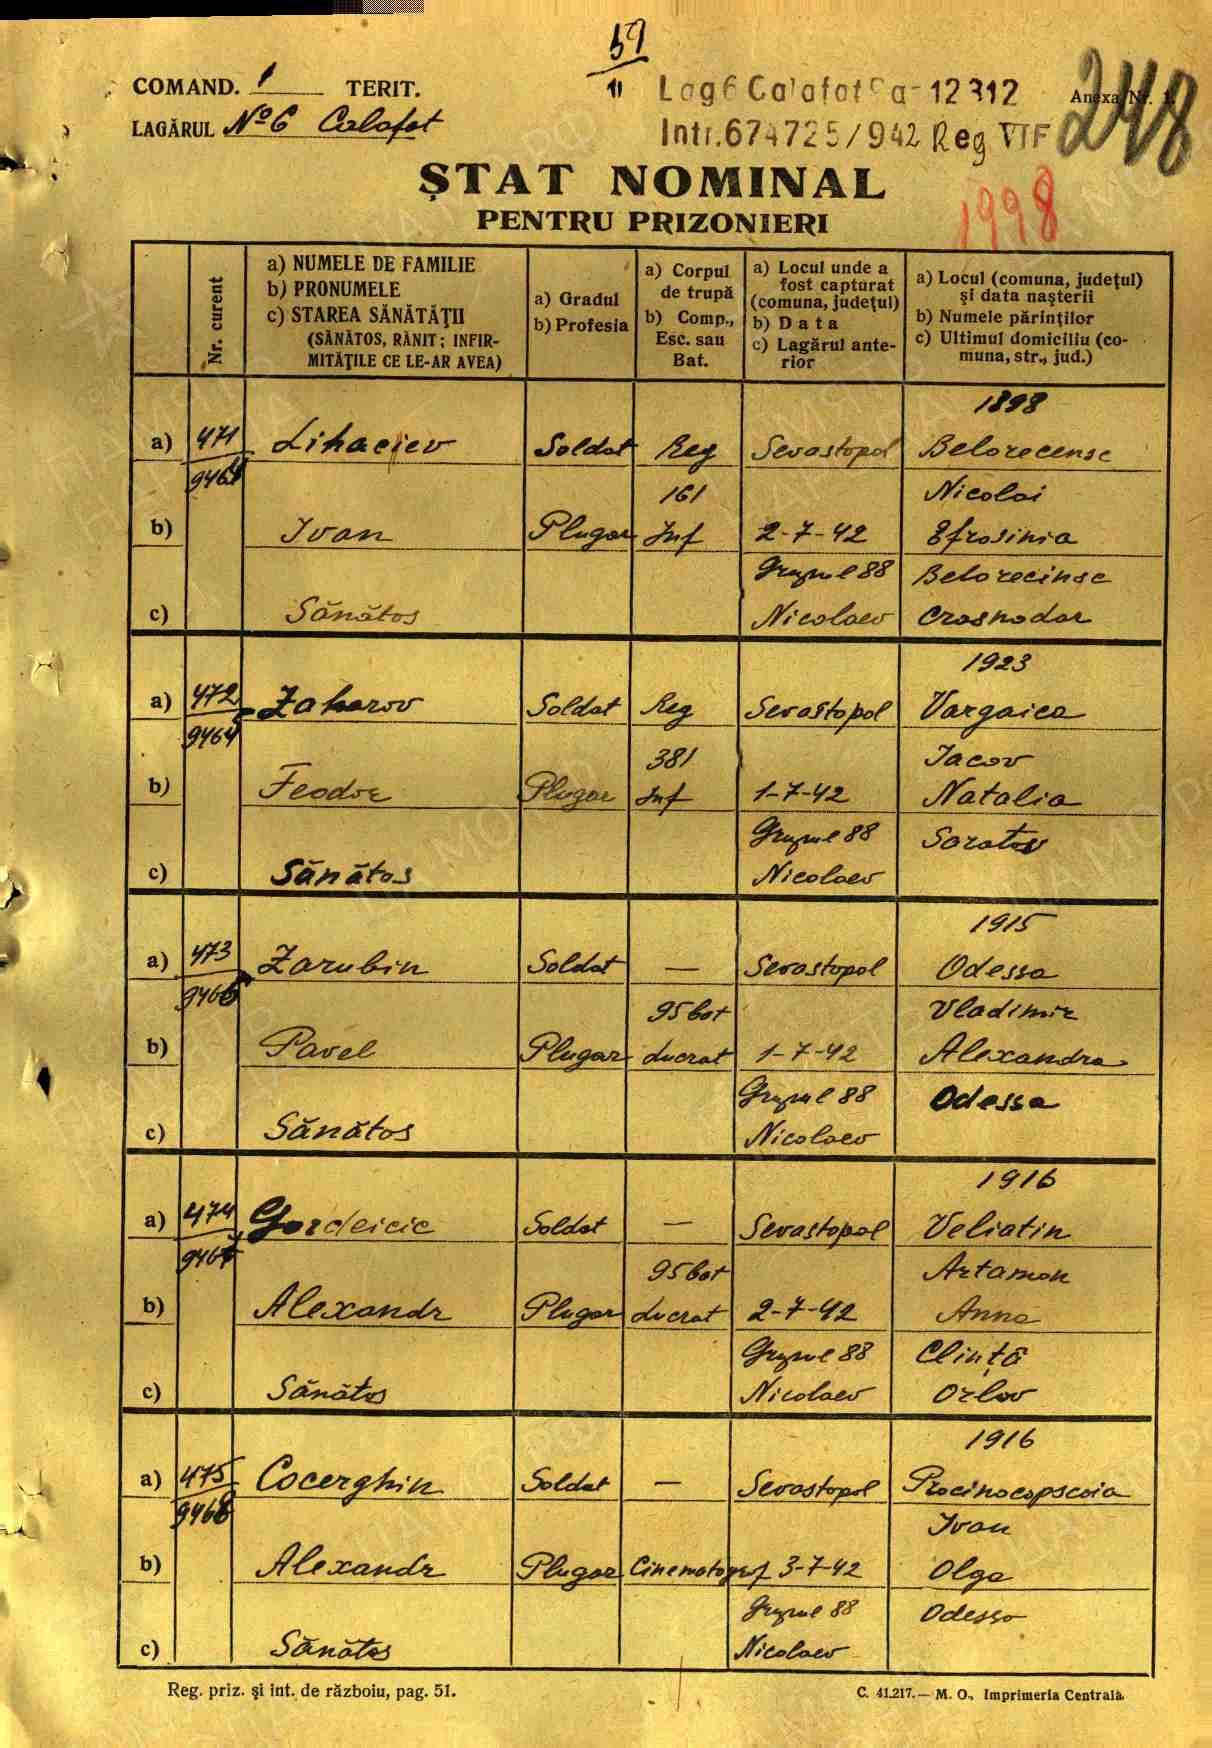 59
11
COMAND. 1 TERIT.
LAGĂRUL Nº6 Calafat
Lag 6 Calafat Pa-12312
Intr. 674725/942 Reg VIF
Anexa Nr. 1.
248
ȘTAT NOMINAL
PENTRU PRIZONIERI
1998
Nr. curent
a) NUMELE DE FAMILIE
b) PRONUMELE
c) STAREA SĂNĂTĂŢII
(SĂNĂTOS, RĂNIT ; INFIR-
MITĂŢILE CE LE-AR AVEA)
a) Gradul
b) Profesia
a) Corpul
de trupă
b) Comp.,
Esc. sau
Bat.
a) Locul unde a
fost capturat
(comuna, judeţul)
b) Data
c) Lagărul ante-
rior
a) Locul (comuna, judeţul)
şi data naşterii
b) Numele părinţilor
c) Ultimul domiciliu (co-
muna, str., jud.)
1898
a) 471 Lihaciev Soldat Reg Sevastopol Belorecensc
161 Nicolai
b) Ivan Plugar Inf 2-7-42 Efrosinia
Grupul 88 Belorecinsc
c) Sănătos Nicolaev Crasnodar
1923
a) 472 Zaharov Soldat Reg Sevastopol Vargaica
9464
381 Iacov
b) Feodor Plugar Inf 1-7-42 Natalia
Grupul 88 Saratov
c) Sănătos Nicolaev
1915
a) 473 Zarubin Soldat — Sevastopol Odessa
95 bat Vladimir
b) Pavel Plugar Lucrat 1-7-42 Alexandra
Grupul 88 Odessa
c) Sănătos Nicolaev
1916
a) 474 Gordeicic Soldat — Sevastopol Veliatin
95 bat Artamon
b) Alexandr Plugar Lucrat 2-7-42 Anna
Grupul 88 Clință
c) Sănătos Nicolaev Orlov
1916
a) 475 Cocerghin Soldat — Sevastopol Procinocopscoia
9468 Ivan
b) Alexandr Plugar Cinematograf 3-7-42 Olga
Grupul 88 Odessa
c) Sănătos Nicolaev
Reg. priz. şi int. de război, pag. 51.
C. 41.217.— M. O., Imprimeria Centrală.